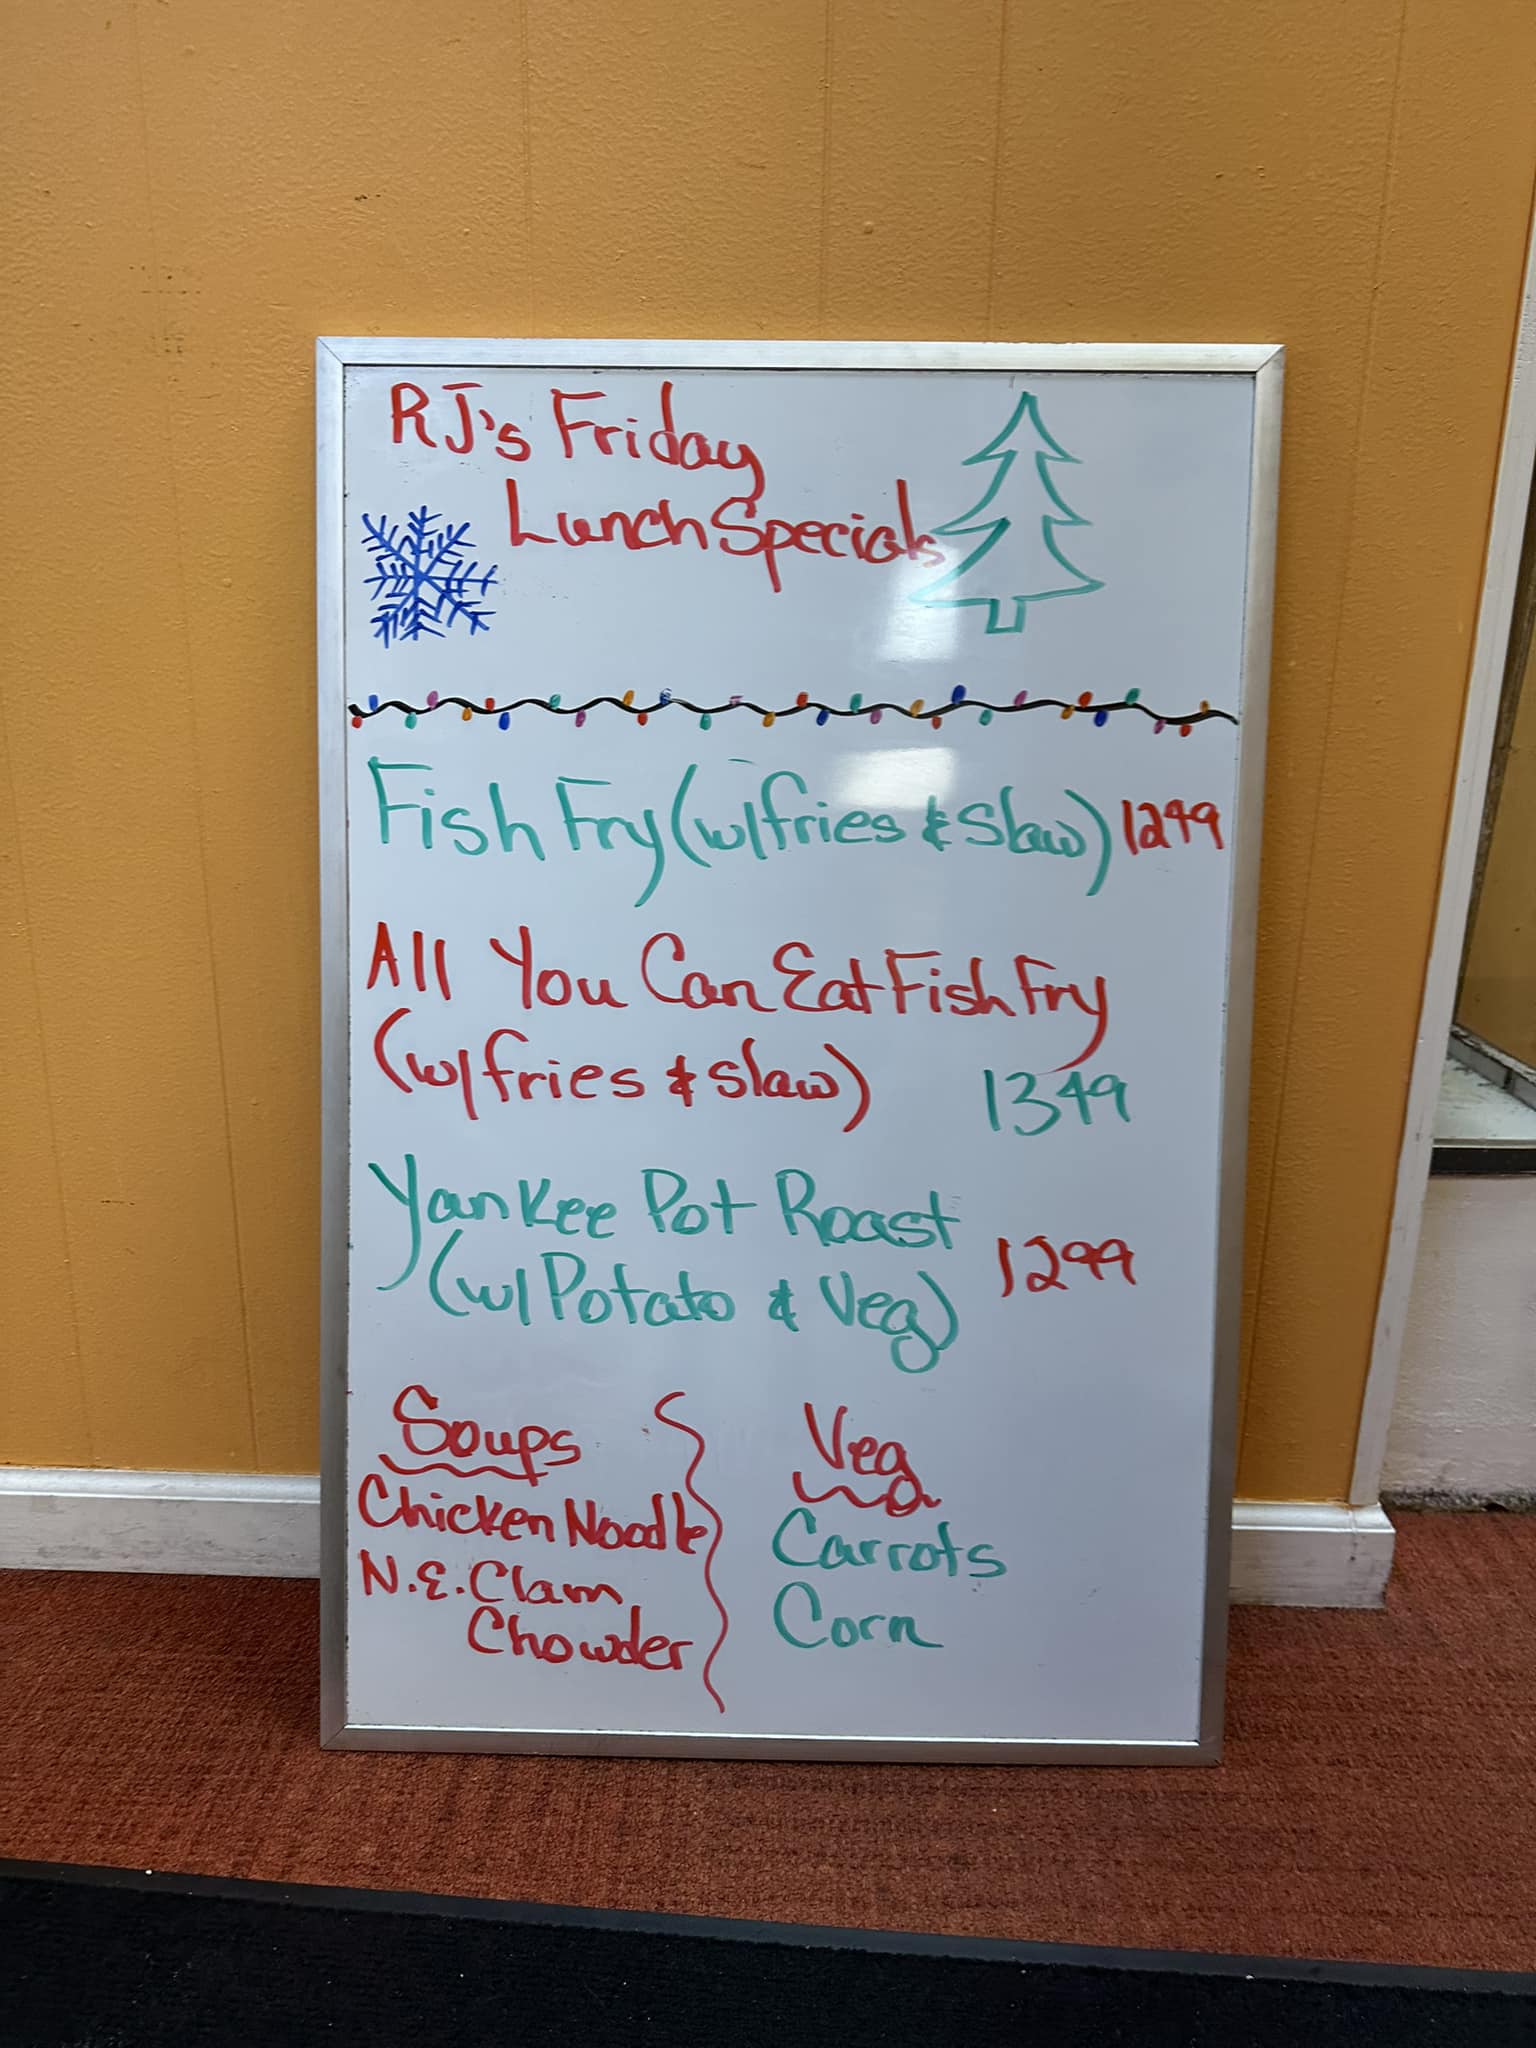 RJ's Friday
Lunch Specials
Fish Fry (w/fries & Slaw) 1249
All You Can Eat Fish Fry
(w/fries & slaw) 1349
Yankee Pot Roast
(w/Potato & Veg) 1299
Soups
Chicken Noodle
N.E. Clam
Chowder
Veg
Carrots
Corn